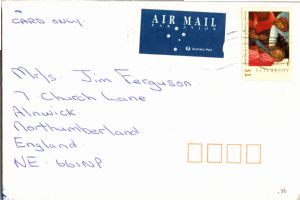 CARD ONLY.
AIR MAIL
PAR AVION
Australia Post
AUSTRALIA
$1
Mr/s. Jim Ferguson.
7 Church Lane
Alnwick
Northumberland
England.
NE. 661NP